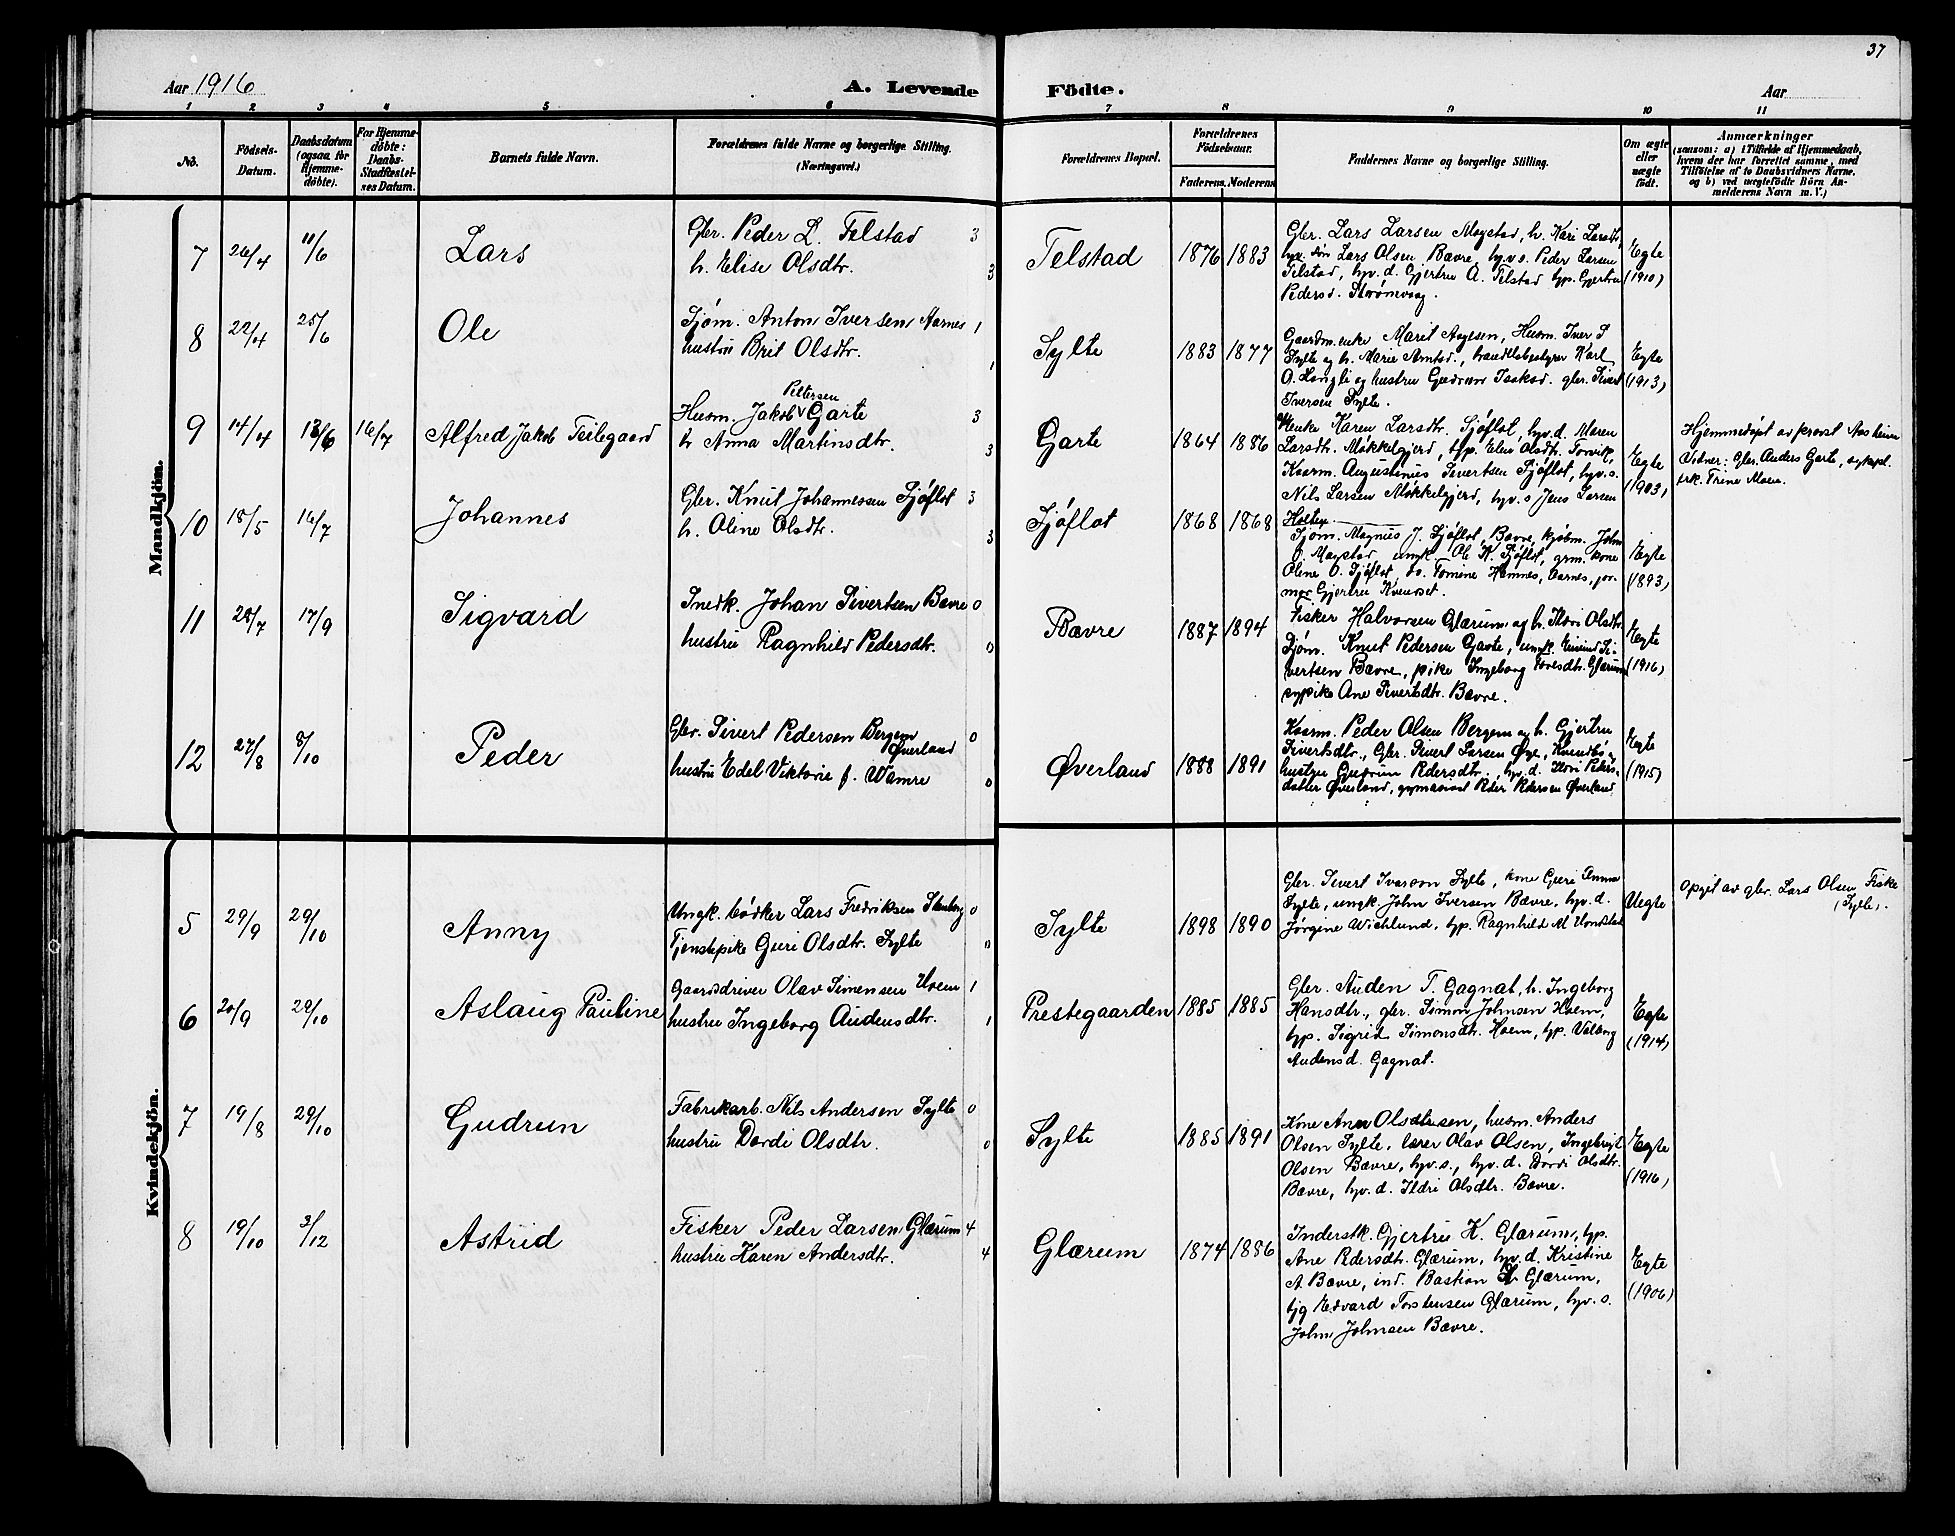 37
Aar 1916
A. Levende Födte.
Aar
1 2 3 4 5 6 7 8 9 10 11
No.
Födsels-Datum.
Daabsdatum (ogsaa for Hjemmedöbte).
For Hjemmedöbte: Daabs-Stadfæstelses Datum.
Barnets fulde Navn.
Forældrenes fulde Navne og borgerlige Stilling. (Næringsvei.)
Forældrenes Bopæl.
Forældrenes Födselsaar.
Faderens. Moderens
Faddernes Navne og borgerlige Stilling.
Om ægte eller uægte födt.
Anmærkninger
(saasom: a) i Tilfælde af Hjemmedaab,
hvem der har forrettet samme, med
Tilföielse af to Daabsvidners Navne,
og b) ved uægtefödte Börn Anmelderens Navn m. V.)
Mandkjön.
7 26/4 11/6 Lars
Gbr. Peder L. Telstad 3
h. Elise Olsdtr. 3
Telstad 1876 1883
Gbr. Lars Larsen Mogstad, h. Kari Larsdtr,
Lars Olsen Bævre, hv. s. Peder Larsen
Telstad, hv. d. Gjertru A. Telstad hp. Gjertru
Pedersd. Strømsvag.
Egte (1910)
8 22/4 25/6 Ole
Sjøm. Anton Iversen Aarnes 1
hustru Brit Olsdtr. 1
Sylte 1883 1877
Gaardm.enke Marit Aagesen, Husm. Iver S
Sylte og h. Marie Arntsd., handlsbestyrer Karl
O. Langli og hustru Gudrun Isaksd. gbr. Sivert
Iversen Sylte.
Egte (1913)
9 14/4 13/6 16/7 Alfred Jakob Teilegaard
Husm. Jakob Pettersen Garte 3
h Anna Martinsdtr. 3
Garte 1864 1886
Enke Karen Larsdtr. Sjøflot, hv. d. Maren
Larsdtr. Møkkelgjerd, hp. Elen Olsdtr. Torvik,
Kaarm. Augustinus Sivertsen Sjøflot, hv. s.
Nils Larsen Møkkelgjerd, hv. s. Jens Larsen
Holten
Egte (1903)
Hjemmedøpt av provst Aasheim
Vidner: Gbr. Anders Garte, sykepl.
frk. Trine Moen.
10 18/5 16/7 Johannes
Gbr. Knut Johannessen Sjøflot 3
h. Oline Olsdtr. 3
Sjøflot 1868 1868
Sjøm. Magnus J. Sjøflot, Bævre, kjøbm. John
O. Mogstad, ungk. Ole K. Sjøflot, grm. kone
Oline O. Sjøflot, Tomine Hamnes, Aarnes, jor-
mor Gjertru Kvendset.
Egte (1893)
11 28/7 17/9 Sigvard
Snedk. Johan Sivertsen Bævre 0
hustru Ragnhild Pedersdtr. 0
Bævre 1887 1894
Fisker Halvorsen Glærum og h. Ildri Olsdtr
Sjøm. Knut Pedersen Garte, ungk. Eivind Si-
vertsen Bævre, pike Ingeborg Toresdtr. Glærum
sypike Ane Sivertsdtr. Bævre.
Egte (1916)
12 27/8 8/10 Peder
Gbr. Sivert Pedersen Bergem Øverland 0
hustru Edel Viktorie f. Wamre 0
Øverland 1888 1891
Kaarm. Peder Olsen Bergem og h. Gjertru
Sivertsdtr., Gbr. Sivert Larsen Øye, Kvendbø
hustru Gudrun Pedersdtr., hv. d. Ildri Peders-
datter Øverland, gymnasiast Peder Pedersen Øverland
Egte (1915)
Kvindekjön.
5 29/9 29/10 Anny
Ungk. bødker Lars Fredriksen Stenberg 0
Tjenstepike Guri Olsdtr. Sylte 0
Sylte 1898 1890
Gbr. Sivert Ivarson Sylte, kone Guri
Sylte, ungk. John Iversen Bævre, hv. d.
Jørgine Wichlund, hp. Ragnhild M
Uegte
Opgit av gbr. Lars Olsen Fiske
(Sylte).
6 20/9 29/10 Aslaug Pauline
Gaardsdriver Olav Simensen Hoem 1
hustru Ingeborg Audensdtr. 1
Prestegaarden 1885 1885
Gbr. Auden T. Gagnat, h. Ingeborg
Hansdtr., gbr. Simon Johnsen Hoem,
hp. Sigrid Simonsdtr. Hoem, hp. Valborg
Audensd. Gagnat.
Egte (1914)
7 19/8 29/10 Gudrun
Fabrikarb. Nils Andersen Sylte 0
hustru Dordi Olsdtr. 0
Sylte 1885 1891
Kone Ane Olsdtr, husm. Anders
Olsen Sylte, lærer Olav Olsen, Ingebrigt
Olsen Bævre, hv. s., hv. d. Dordi Olsdtr.
Bævre, hv. d. Ildri Olsdtr. Bævre.
Egte (1916)
8 19/10 3/12 Astrid
Fisker Peder Larsen Glærum 4
hustru Karen Andersdtr. 4
Glærum 1874 1886
Inderstk. Gjertru K. Glærum, hp.
Ane Pedersdtr. Glærum, hv. d. Kristine
A Bævre, ind. Bastian Glærum,
Edvard Torstensen Glærum, hv. s.
John Johnsen Bævre.
Egte (1906)